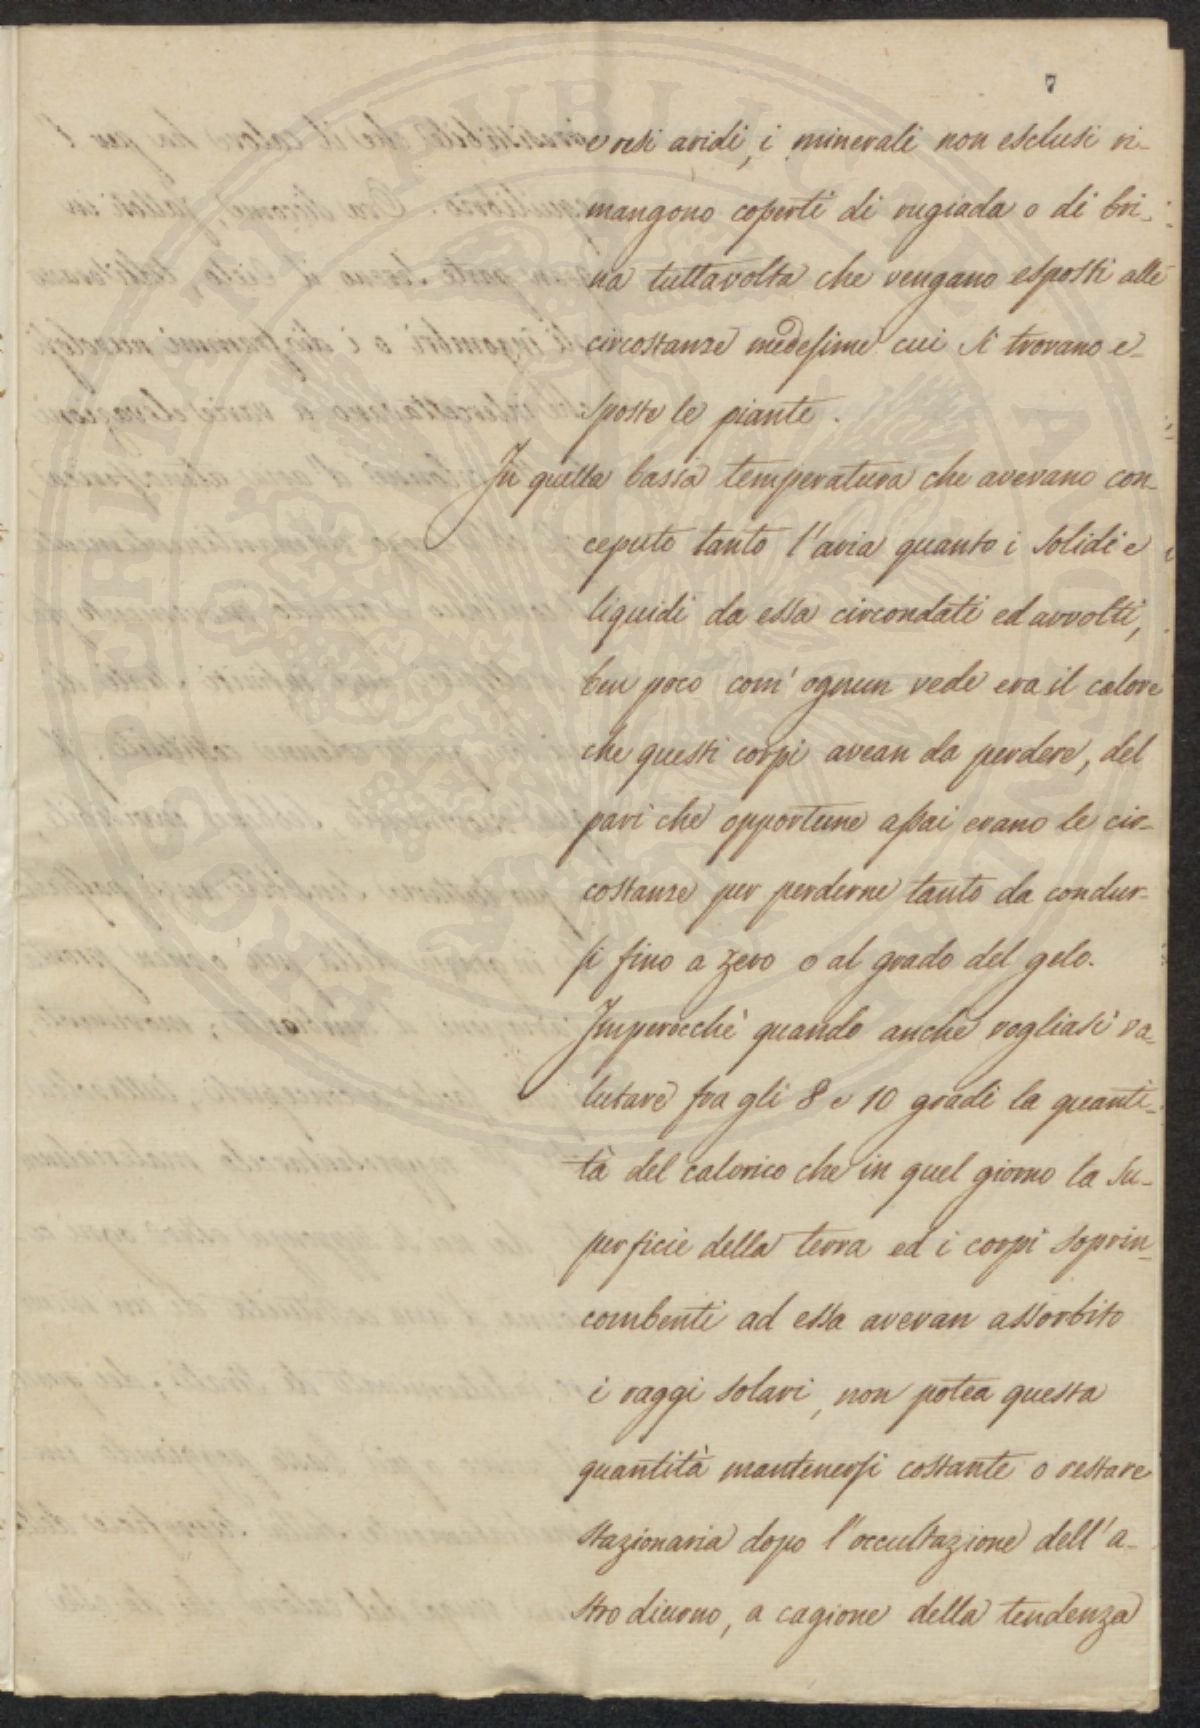 7
e resi aridi, i minerali non esclusi ri-
mangono coperti di rugiada o di bri-
na tuttavolta che vengano esposti alle
circostanze medesime cui si trovano e-
sposte le piante.
In quella bassa temperatura che avevano con-
ceputo tanto l'aria quanto i solidi e
liquidi da essa circondati ed avvolti,
ben poco com' ognun vede era il calore
che questi corpi avean da perdere, del
pari che opportune assai erano le cir-
costanze per perderne tanto da condur-
si fino a zero o al grado del gelo.
Imperocchè quando anche vogliasi va-
lutare fra gli 8 e 10 gradi la quanti-
tà del calorico che in quel giorno la su-
perficie della terra ed i corpi soprin-
combenti ad essa avevan assorbito
i raggi solari, non potea questa
quantità mantenersi costante o restare
stazionaria dopo l'occultazione dell'a-
stro diurno, a cagione della tendenza